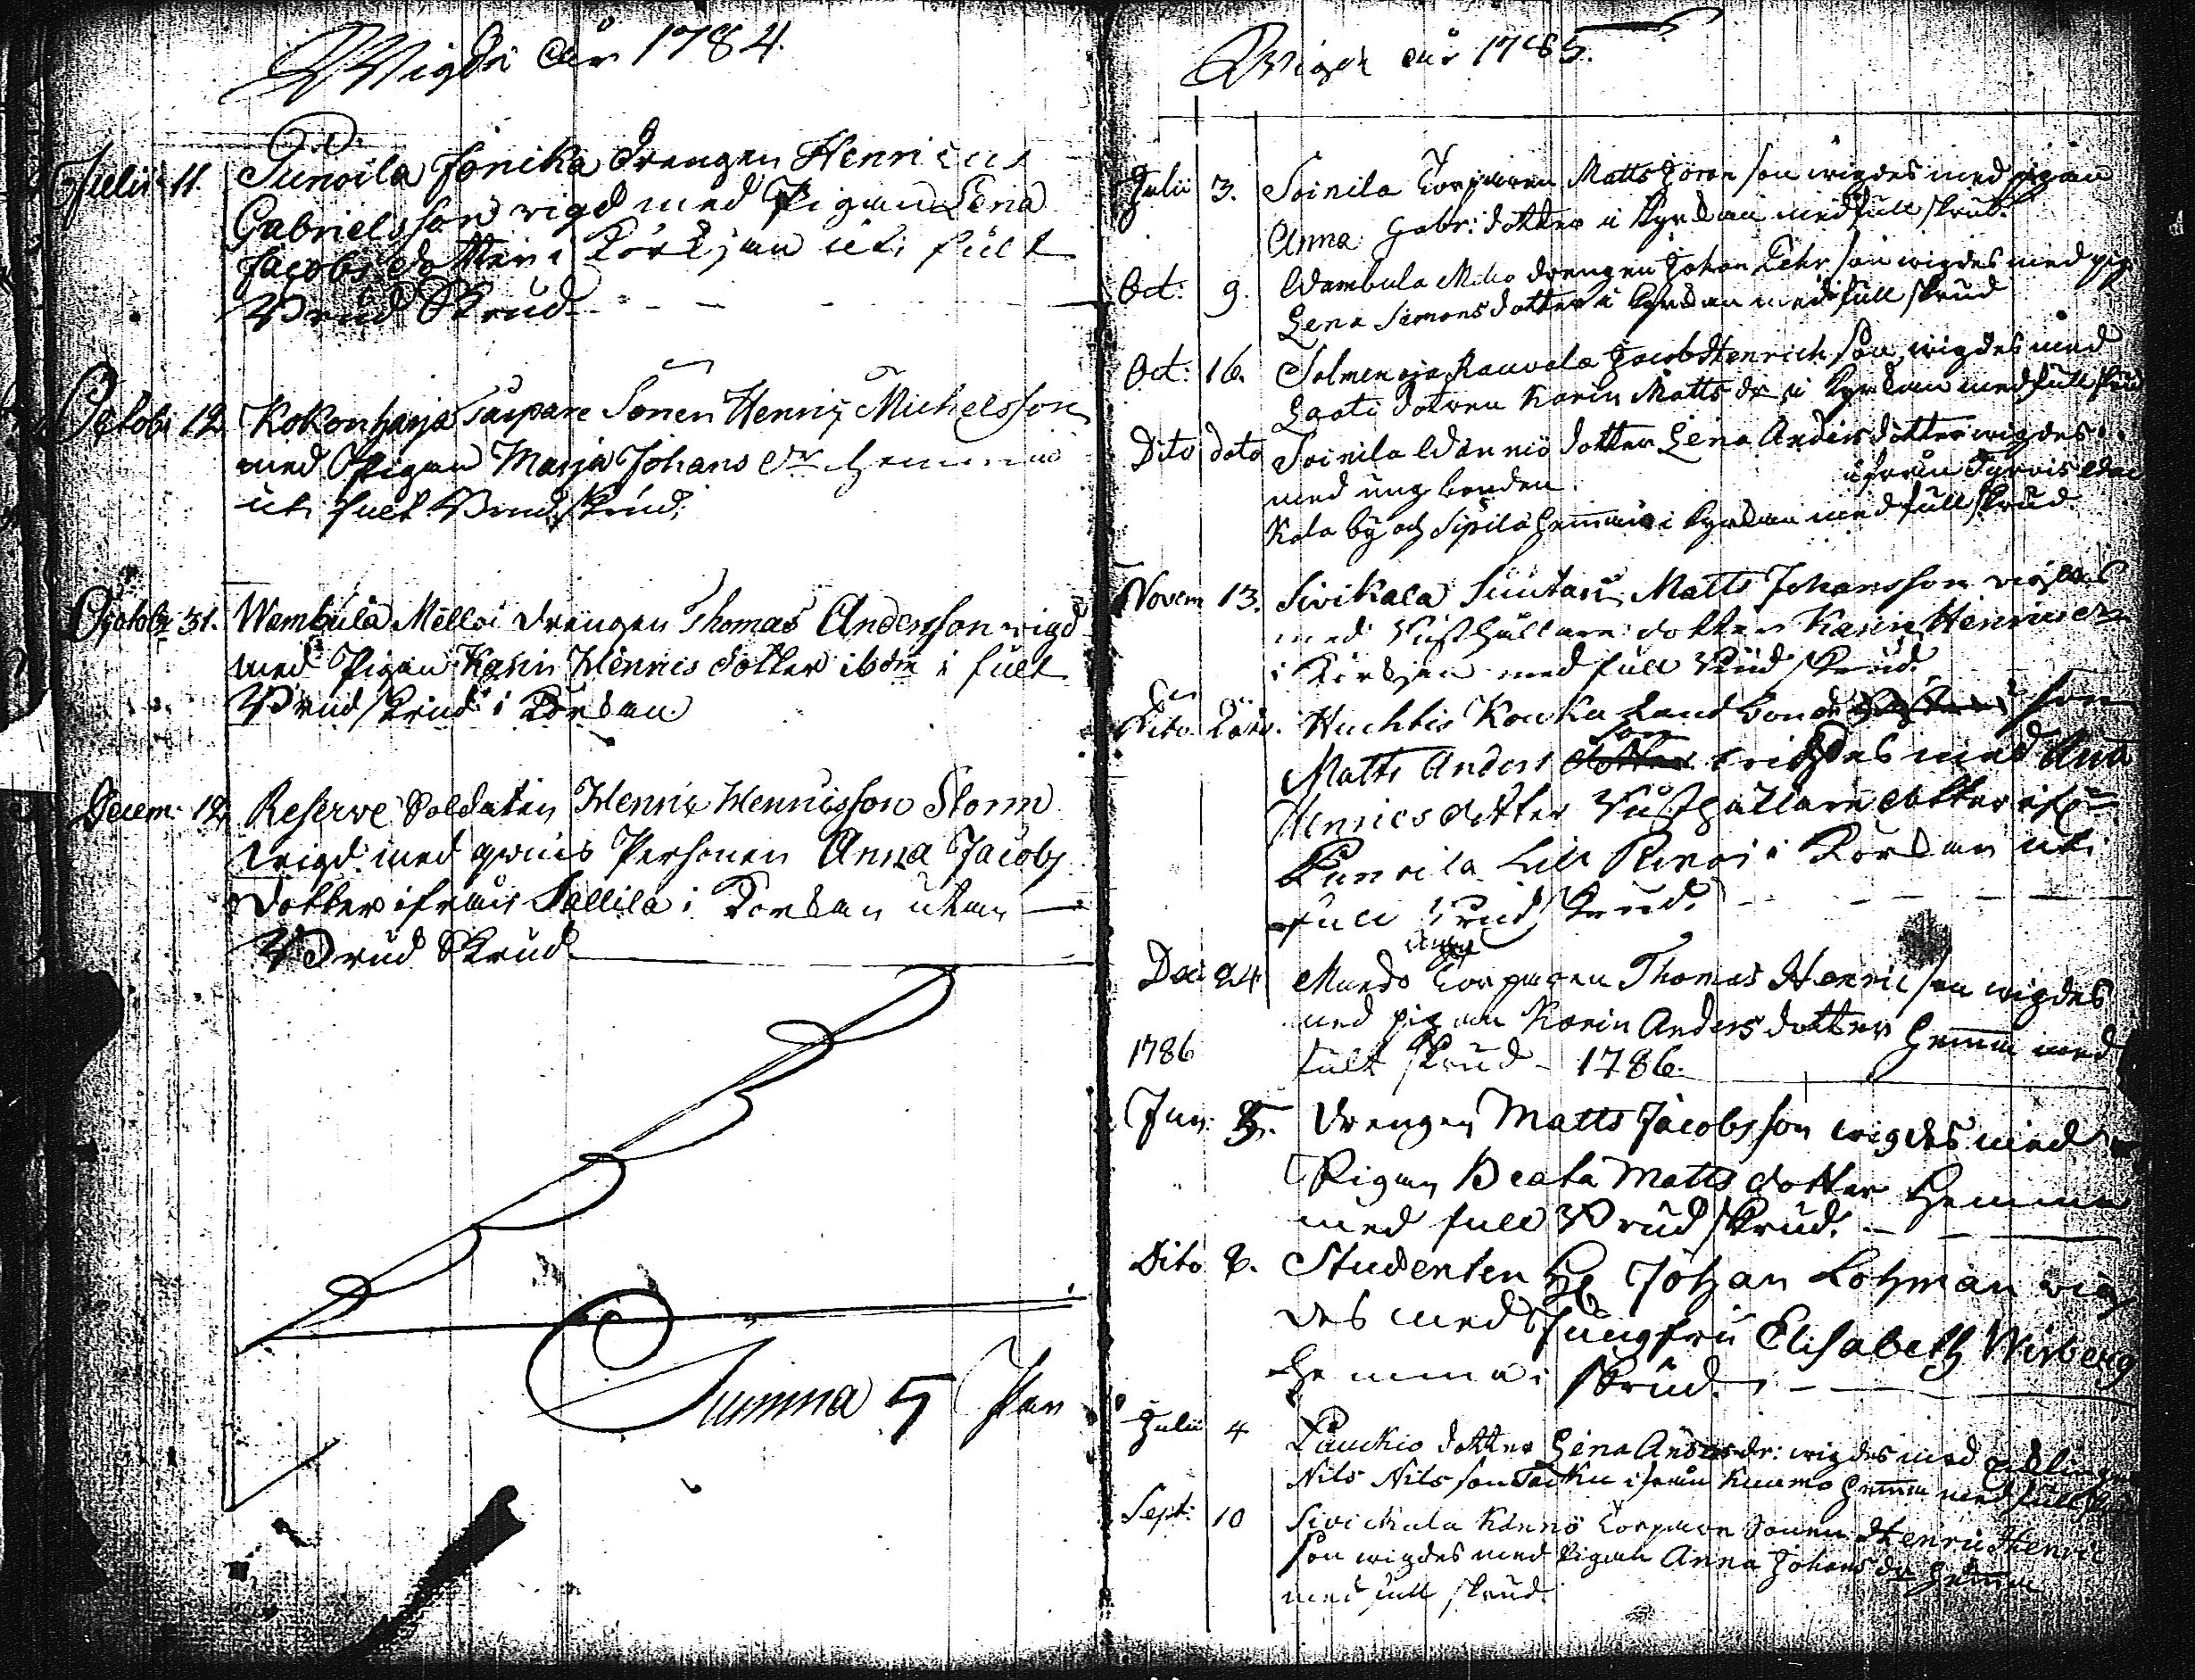 Wigda åår 1784.
Julii 11. Punoila Jönika drengen Henricus
Gabrielsson vigd med Pigan Lena
Jacobsdotter i Körkjan uti fult
Brud Skrud
Octob: 12 Kokonharja Sonen Henric Michelsson
med Pigan Marja Johans dr hemma
uti fult Brudskrud.
Octobr 31. Wambula Mello drengen Thomas Andersson vigd
med Pigan Karin Henrics dotter ibdm i fult
Brudskrud i Körkan
Decem: 12. Reserve Soldaten Henric Henricsson Storm
vigd med qwins Personen Anna Jacobs
dotter ifrån Sallila i Korkan utan
Brud Skrud
Summa 5 Par
Wigde år 1785.
Julii 3. Soinila Torparen Matts Göransson wigdes med pigan
Anna Gabr: dotter i Kyrkan med full skrud.
Oct: 9. Wambula Mello drengen Johan son wigdes med pig
Lena Simonsdotter i Kyrkan med full skrud
Oct: 16. Solmenoja Rauvola Jacob Henrichson wigdes med
Karin Matts dr i Kyrkan med full skrud
Dito dato Soinila dotter Lena Andersdotter wigdes
med unge bonden ifrån
Kala by och Sipilä hemman i Kyrkan med full skrud.
Novem 13. Sivikala Suutari Matts Johansson vigdes
med Rusthållare dotter Karin Henricsdr
i Körkjan med full Brudskrud.
Dito dato. Huchtis Kouka Landbonde son
Matts Anders son wigdes med Ana
Henrics dotter Rusthållare dotter ifrån
Punoila Lill i Körkan uti
full Brud Skrud.
Dec 24 unge
Torparen Thomas Henricson wigdes
med pigan Karin Andersdotter hemma med
1786 fult skrud - 1786.
Jan: 5. Drengen Matts Jacobsson wigdes med
Pigan Beata Matts dotter hemma
med full Brudskrud.
Dito 8. Studenten H Johan Lohman wig
des med Jungfru Elisabeth Wirberg
hemma i skrud.
Julii 4 dotter Lena Anders dr: wigdes med
Nils Nilsson ifrån hemma med full
Sept: 10 Sivickala Könnö Torpare Sonen Henric Henric
son wigdes med Pigan Anna Johans dr hemma
med full skrud.